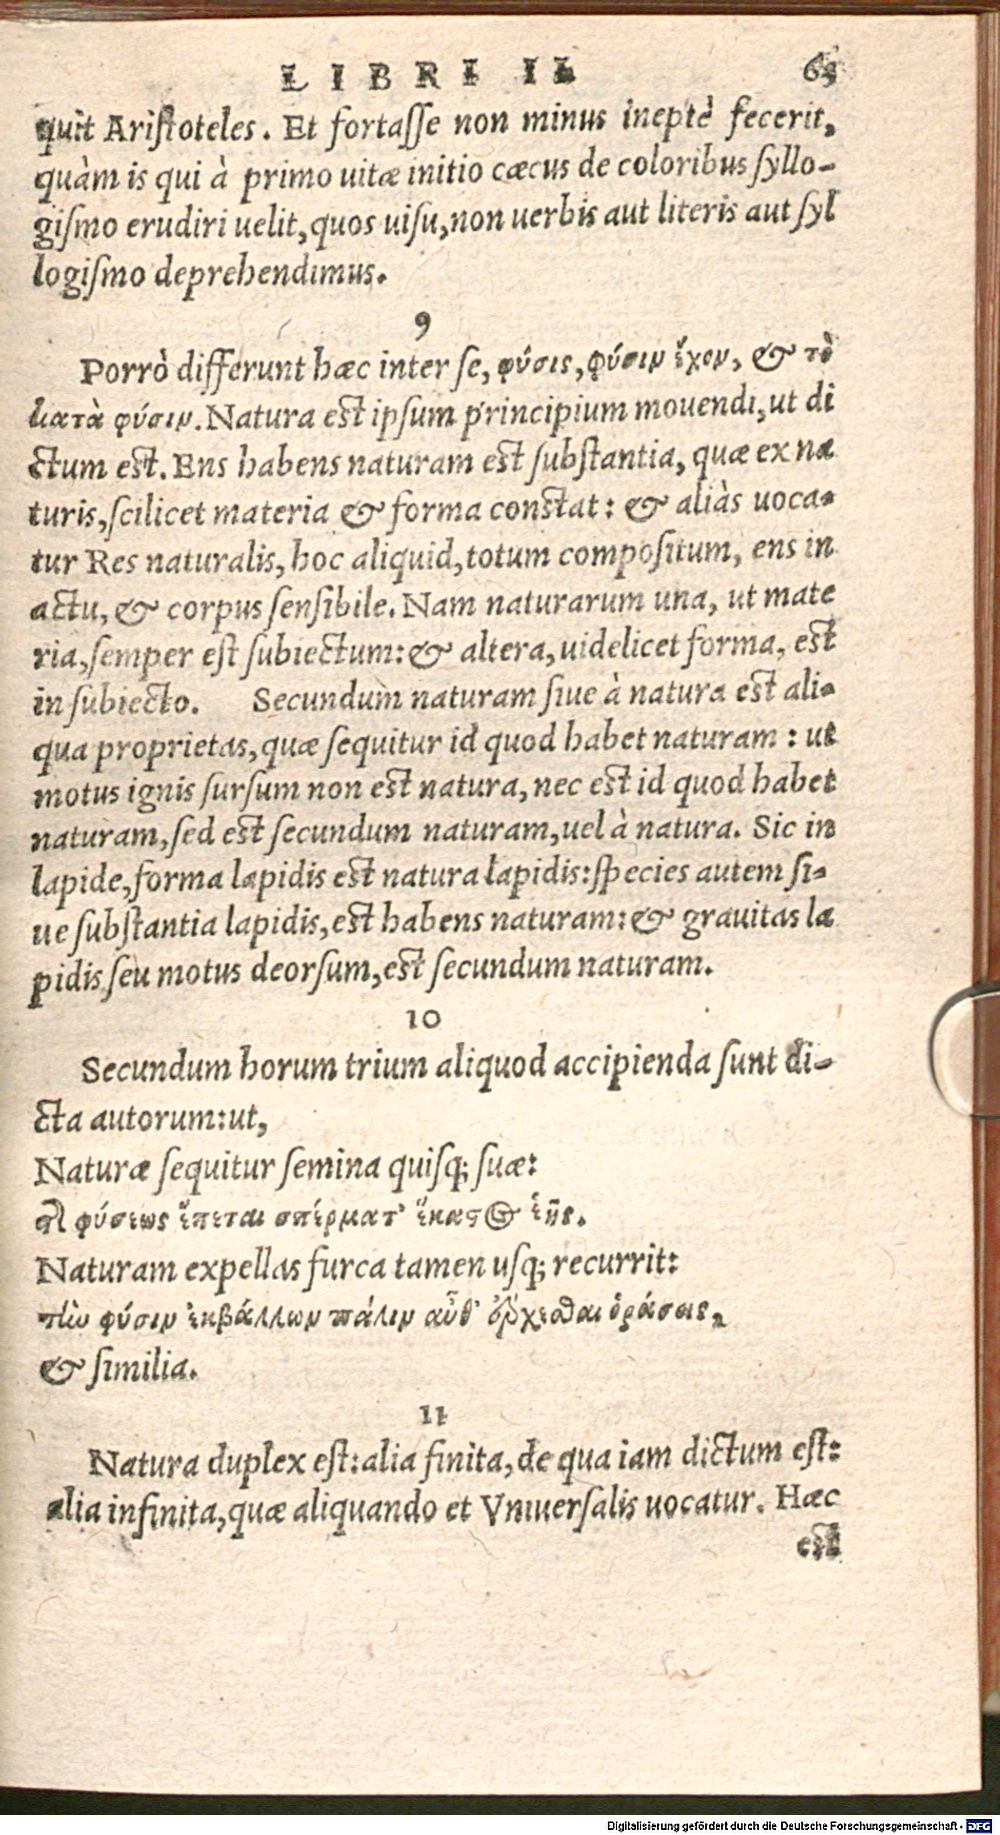 LIBRI II. 63
quit Aristoteles. Et fortasse non minus ineptè fecerit,
quàm is qui à primo uitæ initio cæcus de coloribus syllo-
gismo erudiri uelit, quos uisu, non uerbis aut literis aut syl
logismo deprehendimus.
9
Porrò differunt hæc inter se, φύσις, φύσιν ἔχον, & τὸ
κατὰ φύσιν. Natura est ipsum principium mouendi, ut di
ctum est. Ens habens naturam est substantia, quæ ex na
turis, scilicet materia & forma constat: & aliàs uoca-
tur Res naturalis, hoc aliquid, totum compositum, ens in
actu, & corpus sensibile. Nam naturarum una, ut mate
ria, semper est subiectum: & altera, uidelicet forma, est
in subiecto. Secundum naturam siue à natura est ali-
qua proprietas, quæ sequitur id quod habet naturam: ut
motus ignis sursum non est natura, nec est id quod habet
naturam, sed est secundum naturam, uel à natura. Sic in
lapide, forma lapidis est natura lapidis: species autem si-
ue substantia lapidis, est habens naturam: & grauitas la
pidis seu motus deorsum, est secundum naturam.
10
Secundum horum trium aliquod accipienda sunt di-
cta autorum: ut,
Naturæ sequitur semina quisq; suæ:
φύσεως ἕπεται σπέρματ' ἕκαστος ἑῆς.
Naturam expellas furca tamen usq; recurrit:
τὴν φύσιν ἐκβάλλων πάλιν αὖθ' ἔρχεσθαι ὁράσεις,
& similia.
11
Natura duplex est: alia finita, de qua iam dictum est:
alia infinita, quæ aliquando et Vniuersalis uocatur. Hæc
est
Digitalisierung gefördert durch die Deutsche Forschungsgemeinschaft - DFG